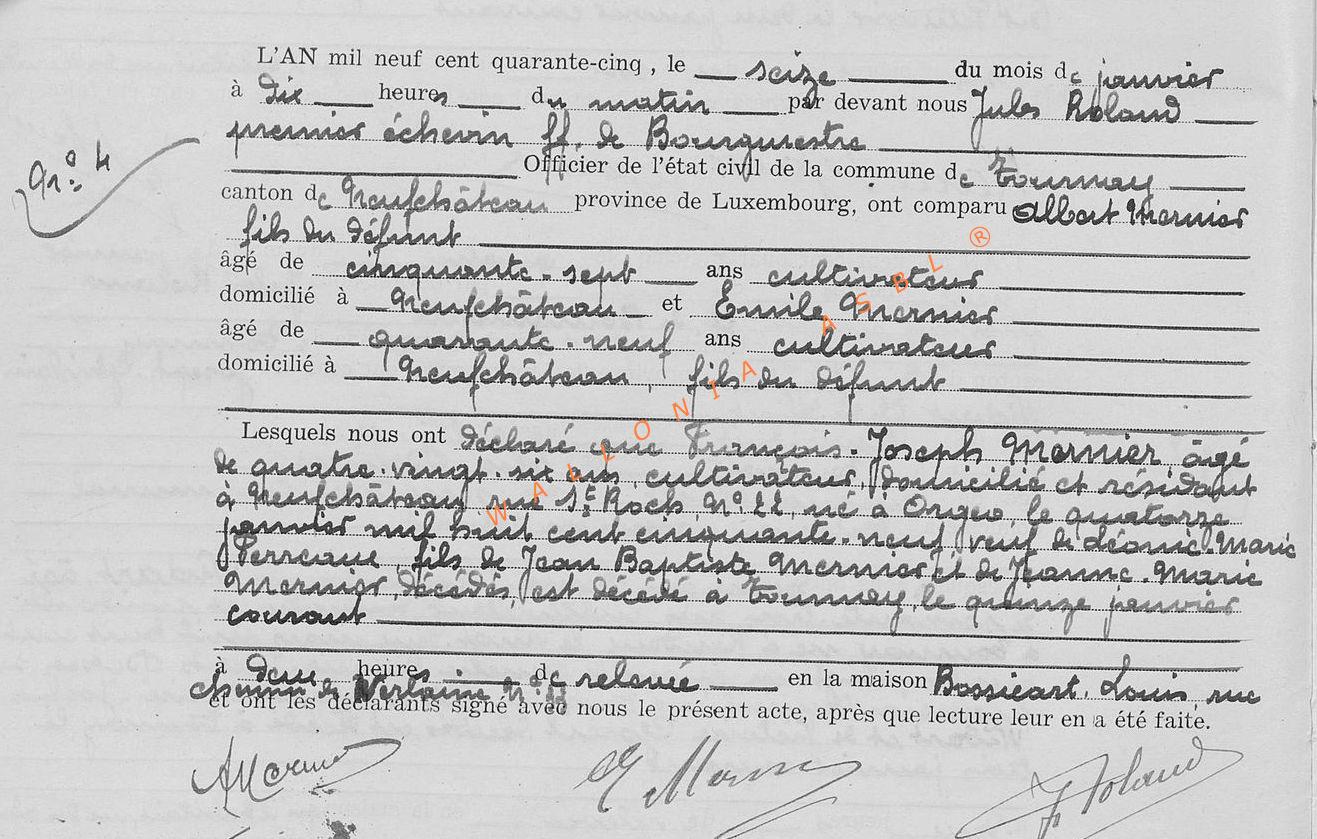 L'AN mil neuf cent quarante-cinq , le seize du mois de janvier
à dix heures du matin par devant nous Jules Roland
premier échevin ff. de Bourgmestre
Nr.º 4
Officier de l'état civil de la commune de Tournay
canton de Neufchâteau province de Luxembourg, ont comparu Albert Mernier
fils du défunt
âgé de cinquante-sept ans cultivateur
domicilié à Neufchâteau et Emile Mernier
âgé de quarante-neuf ans cultivateur
domicilié à Neufchâteau, fils du défunt
Lesquels nous ont déclaré que François-Joseph Mernier, âgé
de quatre-vingt-six ans, cultivateur, domicilié et résidant
à Neufchâteau rue St Roch Nº 22, né à Orgeo, le quatorze
janvier mil huit cent cinquante-neuf, veuf de Léonie-Marie
Perreaux, fils de Jean Baptiste Mernier et de Jeanne-Marie
Mernier, décédés, est décédé à Tournay, le quinze janvier
courant
à deux heures de relevée en la maison Bossicart, Louis, rue
chemin de Verlaine Nº
et ont les déclarants signé avec nous le présent acte, après que lecture leur en a été faite.
AMernier E Mernier J Roland
WALLONIA ASBL ®